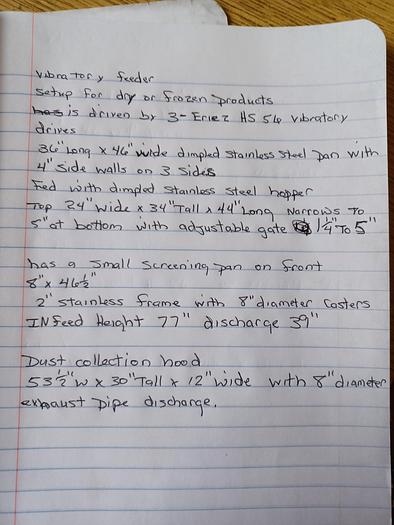 Vibratory feeder
Setup for dry or frozen products
is driven by 3-Eriez HS 56 vibratory
drives
36" Long x 46" wide dimpled stainless steel pan with
4" side walls on 3 sides
Fed with dimpled stainless steel hopper
Top 24" wide x 34" Tall x 44" Long Narrows To
5" at bottom with adjustable gate 1¼" To 5"
has a small screening pan on front
8" x 46½"
2" stainless frame with 8" diameter casters
INfeed Height 77" discharge 39"
Dust collection hood
53½" W x 30" Tall x 12" wide with 8" diameter
exhaust pipe discharge.